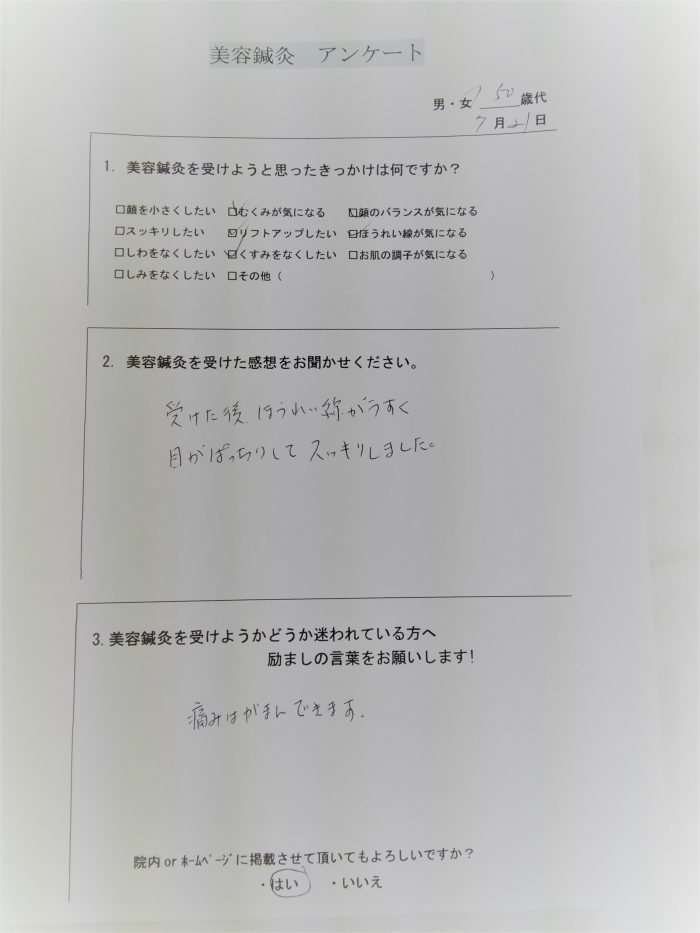 美容鍼灸 アンケート
男・女 50歳代
7月21日
1. 美容鍼灸を受けようと思ったきっかけは何ですか？
□顔を小さくしたい ☑むくみが気になる ☑顔のバランスが気になる
□スッキリしたい ☑リフトアップしたい ☑ほうれい線が気になる
□しわをなくしたい ☑くすみをなくしたい □お肌の調子が気になる
□しみをなくしたい □その他（ ）
2. 美容鍼灸を受けた感想をお聞かせください。
受けた後、ほうれい線がうすく
目がぱっちりして スッキリしました。
3. 美容鍼灸を受けようかどうか迷われている方へ
励ましの言葉をお願いします！
痛みはがまんできます。
院内 or ﾎｰﾑﾍﾟｰｼﾞに掲載させて頂いてもよろしいですか？
・はい ・いいえ